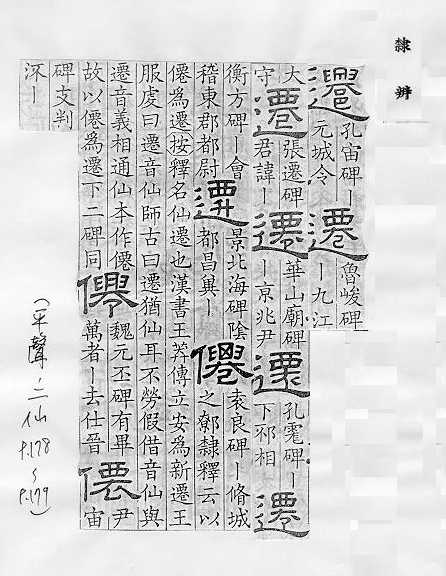 隸辨
遷
孔宙碑丨
元城令
遷
魯峻碑
丨九江
大
守
遷
張遷碑
君諱丨
遷
華山廟碑
丨京兆尹
遷
孔碑丨
下邳相
遷
衡方碑丨會
稽東郡都尉
遷
景北海碑陰
都昌丨
僊
袁良碑丨脩城
之鄣隸釋云以
僊為遷按釋名仙遷也漢書王莽傳立安為新遷王
服虔曰遷音仙師古曰遷猶仙耳不勞假借音仙與
遷音義相通仙本作僊
故以僊為遷下二碑同
僊
魏元丕碑有畢
萬者丨去仕晉
僊
尹
宙
碑支判
流丨
(平聲·二仙 P.178~P.179)